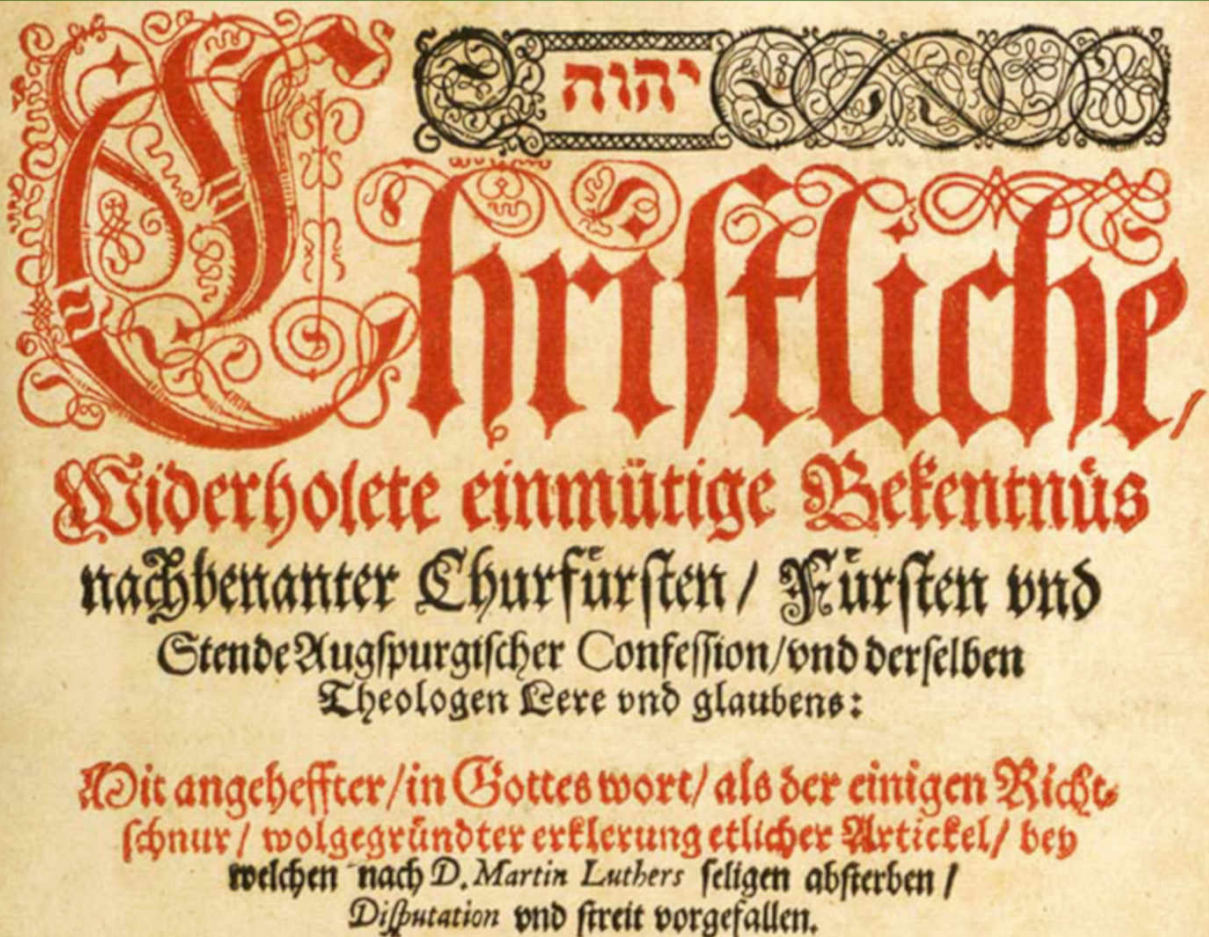 יהוה
Christliche,
Widerholete einmütige Bekentnüs
nachbenanter Churfürsten/ Fürsten vnd
Stende Augspurgischer Confession/ vnd derselben
Theologen Lere vnd glaubens:
Mit angeheffter/ in Gottes wort/ als der einigen Richt-
schnur/ wolgegründter erklerung etlicher Artickel/ bey
welchen nach D. Martin Luthers seligen absterben/
Disputation vnd streit vorgefallen.